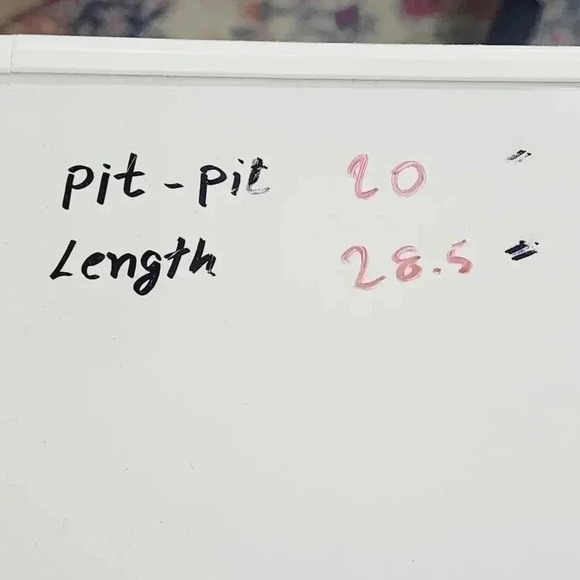 pit - pit 20 "
Length 28.5 "